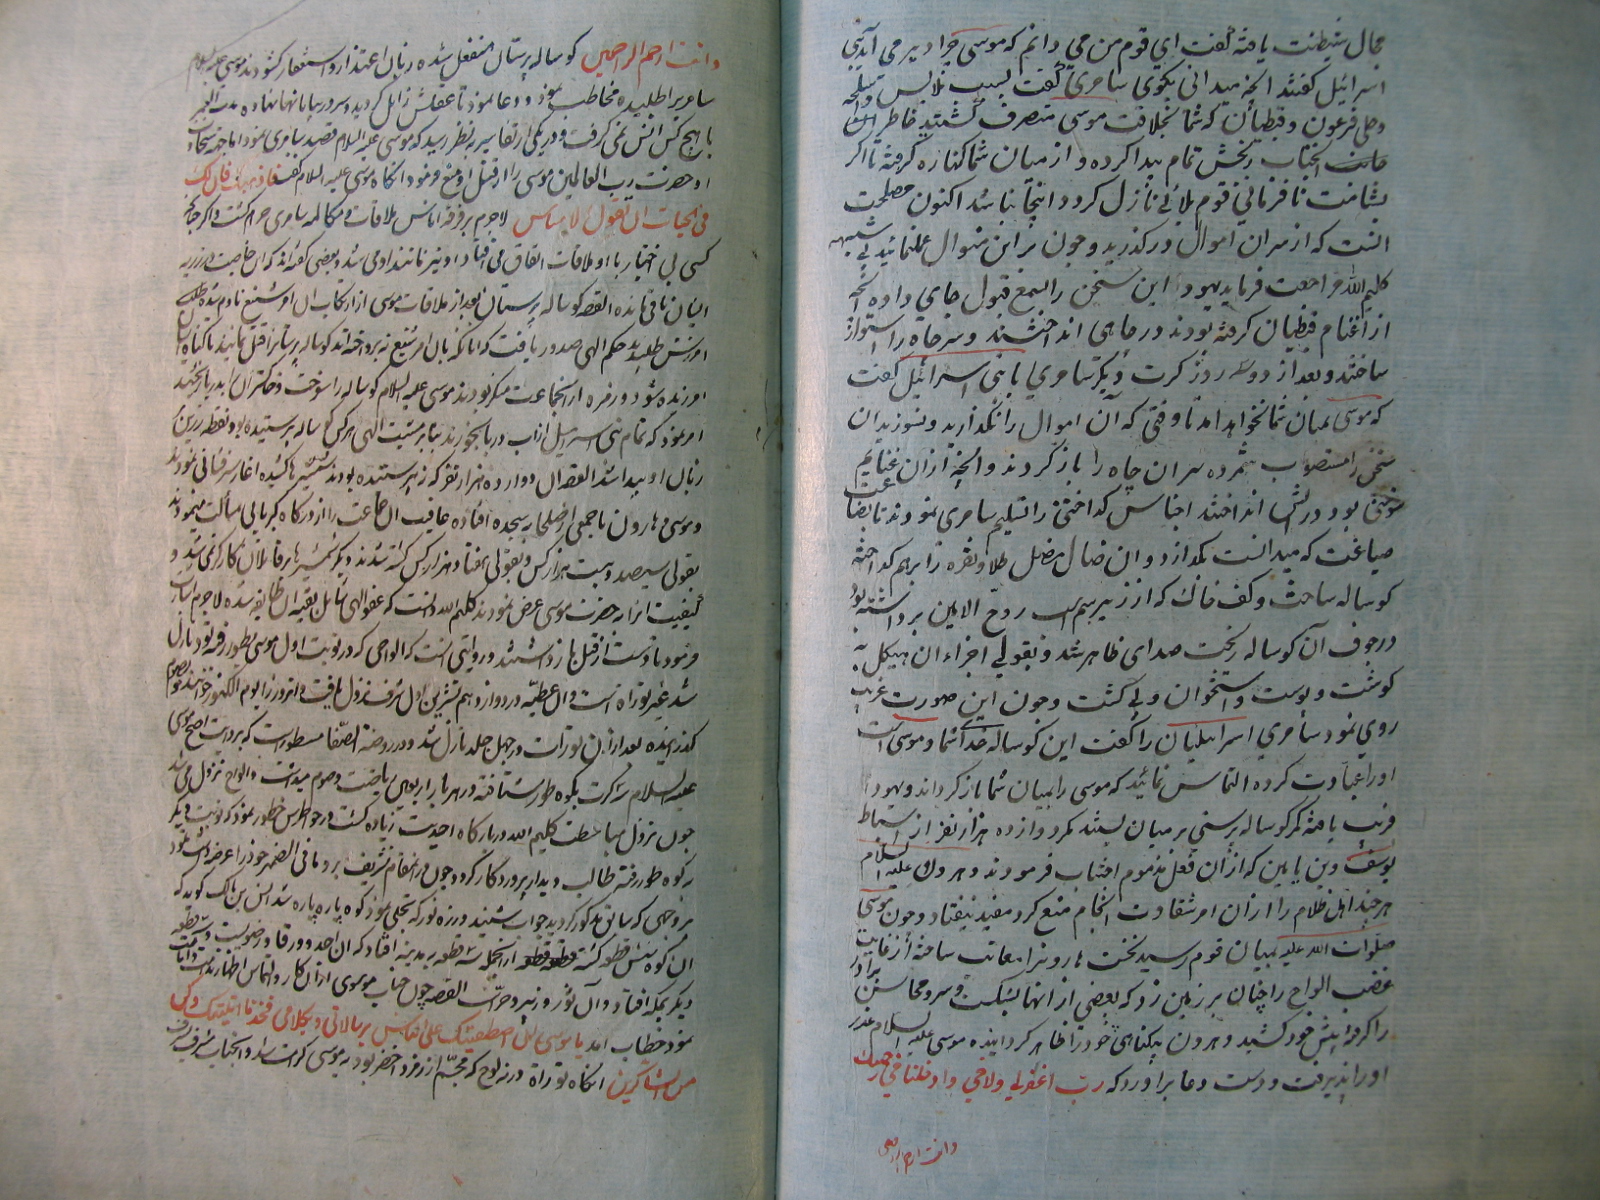 مجال شیطنت یافته گفت ای قوم من می دانم که موسی چرا دیر می آید بنی
اسرائیل گفتند آنچه میدانی بگوی سامری گفت بسبب تلابس
وحلی فرعون و قبطیان که شما بخلافت موسی متصرف گشتید خاطر
آنجناب رنجش تمام پیدا کرده و از میان شما کناره گرفته تا اگر
بشامت نافرمانی قوم بلائی نازل گردد اینجا نباشد اکنون مصلحت
آنست که از سر آن اموال درگذرید و چون بر این منوال عمل نمائید بی شبهه
کلیم الله مراجعت فرماید یهود این سخن را بسمع قبول جای داده آنچه
از اغنام قبطیان گرفته بودند در چاهی انداختند و سر چاه را استوار
ساختند و بعد از دو سه روز کرت دیگر سامری با بنی اسرائیل گفت
که موسی بمیان شما نخواهد آمد تا وقتی که آن اموال را نگذارید و نسوزید آن
سخن را مستصواب شمرده سر آن چاه را باز کردند و آنچه از آن غنایم
سوختنی بود در آتش انداختند اجناس گداختنی را تسلیم سامری نمودند تا بضاعت
صیاغت که میدانست بگدازد و آن ضال مضل طلا و نقره را برهم گداخته
گوساله ساخت و کف خاک که از زیر سم اسب روح الامین برداشته بود
در جوف آن گوساله ریخت صدای ظاهر شد و بقولی اجزاء آن هیکل به
گوشت و پوست و استخوان وپی گشت و چون این صورت غریب
روی نمود سامری اسرائیلیان را گفت این گوساله خدای شما و موسی است
او را عبادت کرده التماس نمائید که موسی را بمیان شما باز گرداند و یهود
فریب یافته کمر گوساله پرستی بر میان بستند مگر دوازده هزار نفر از اسباط
یوسف و بن یامین که از آن فعل مذموم اجتناب فرمودند و هرون علیه السلام
هر چند اهل ظلام را از آن امر شقاوت انجام منع کرد مفید نیفتاد و چون موسی
صلوات الله علیه بمیان قوم رسید نخست هارون را معاتب ساخته از غایت
غضب الواح را چنان بر زمین زد که بعضی از آنها بشکست و سر و محاسن برادر
را گرفته پیش خود کشید و هرون بیگناهی خود را ظاهر گردانیده موسی علیه السلام عذر
او را پذیرفت و دست دعا برآورد که رب اغفرلی ولاخی وادخلنا فی رحمتک
وانت ارحم الراحمین
وانت ارحم الراحمین گوساله پرستان منفعل شده زبان اعتذار و استغفار گشودند موسی علیه السلام
سامری را طلبیده مخاطب نمود و دعا نمود تا عقلش زایل گردید و سر در بیابانها نهاده مدت العمر
با هیچ کس انس نمی گرفت و در یکی از تفاسیر بنظر رسید که موسی علیه السلام قصد سامری نمود اما
حضرت رب العالمین موسی را از قتل او منع فرمود آنگاه موسی علیه السلام گفت فاذهب فان لک
فی الحیات ان تقول لا مساس لاجرم بر فرقه اناس ملاقات و مکالمه سامری حرام گشت و اگر
کسی بی اختیار با او ملاقات اتفاق می افتاد او نیز مانند او می شد و بعضی گفته اند که آن خاصیت در
ایشان باقی مانده القصه گوساله پرستان بعد از ملاقات موسی از ارتکاب آن امر شنیع نادم شده
آمرزش طلبیدند حکم الهی صدور یافت که آنانکه بآن امر شنیع نپرداخته اند گوساله پرستانرا قتل نمایند تا گناه
آمرزیده شود و زمره از آنجماعت منکر بودند موسی علیه السلام گوساله را سوخت و خاکستر آن بدریا
امر نمود که تمام بنی اسرائیل از آب دریا بخورند بنابر مشیت الهی هر کس گوساله پرستیده بود نقطه زرین
بر زبان او پیدا شد القصه آن دوازده هزار نفر که نپرستیده بودند شمشیرها کشیده آغاز سرافشانی نمودند
و موسی و هارون با جمعی از صلحا بسجده افتاده عافیت آن جماعت را از درگاه کبریائی مسألت مینمودند
بقولی سیصد و بیست هزار کس و بقولی هفتاد هزار کس کشته شدند دیگر شمشیرها بر قابلان کارگر نمی شد و
کیفیت آنرا بحضرت موسی عرض نمودند کلیم الله دانست که عفو الهی شامل بقیه آن طایفه شده لاجرم
فرمود تا دست از قتل باز داشتند و روایتی است که الواحی که در نوبت اول موسی بطور رفته بود نازل
شد غیر توراة است و آن عطیه در دوازدهم تشرین اول شرف نزول یافت و آنروز را یوم
گذرانیده بعد از آن تورات در چهل جلد نازل شد و در روضة الصفا مسطور است که بروایت اصح موسی
علیه السلام سه کرت بکوه طور شتافته و در هر بار اربعین ریاضت و صوم میداشت و الواح نزول می شد
چون نزول مباسطت کلیم الله در بارگاه احدیت زیاده گشت در خاطرش خطور نمود که نوبت دیگر
بکوه طور رفته طالب دیدار پروردگار گردد چون در آنمقام شریف برد ما فی الضمیر خود را عرضه داشت
بر وجهی که سابق مذکور گردید جواب شنید و ذره نور که تجلی نمود کوه پاره پاره شد انس بن مالک گوید که
آن کوه شش قطعه گشته از آنجمله سه قطعه بمدینه افتاد که آن احد و ورقا و رضویست و سه قطعه
دیگر بمکه افتاد و آن ثور و زبیر و حراست القصه چون جناب موسوی از آن کار و التماس اظهار
نمود خطاب آمد یا موسی انی اصطفیتک علی الناس برسالاتی وبکلامی فخذ ما اتیتک وکن
من الشاکرین آنگاه توراة در نه لوح که مجسم از زمرد اخضر بود بموسی کرامت شد و آنجناب